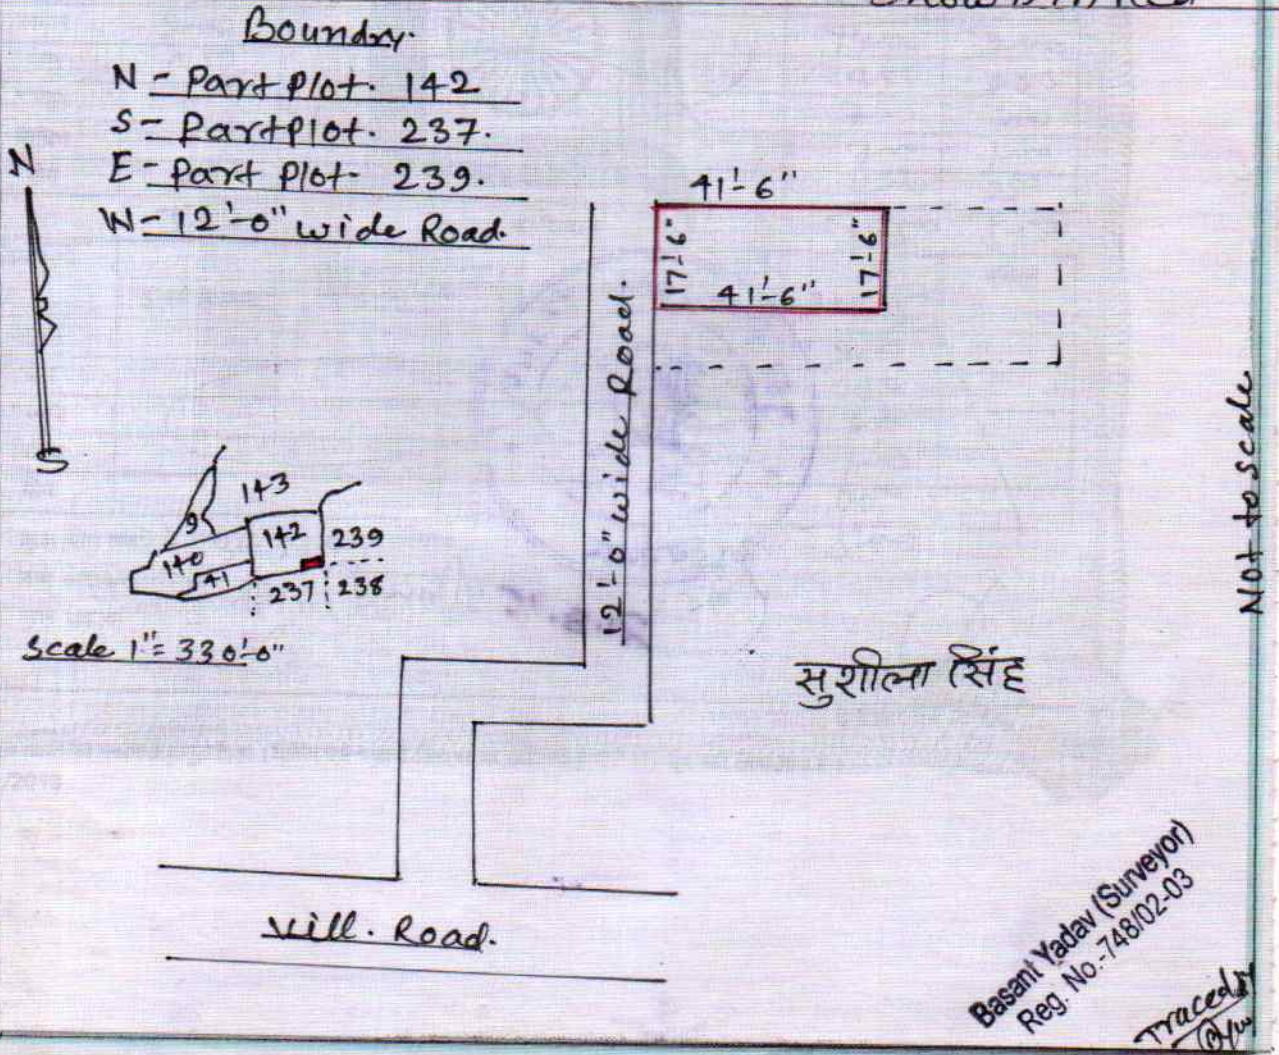 Boundry.
N - Part Plot. 142
S - Part Plot. 237.
E - Part Plot - 239.
W - 12'-0" wide Road.
N
S
41'-6"
17'-6"
17'-6"
41'-6"
12'-0" wide Road.
143
9
142
239
140
41
237
238
Scale 1" = 330'-0"
Not to scale
सुशीला सिंह
Vill. Road.
Basant Yadav (Surveyor)
Reg. No.-748/02-03
Traced by